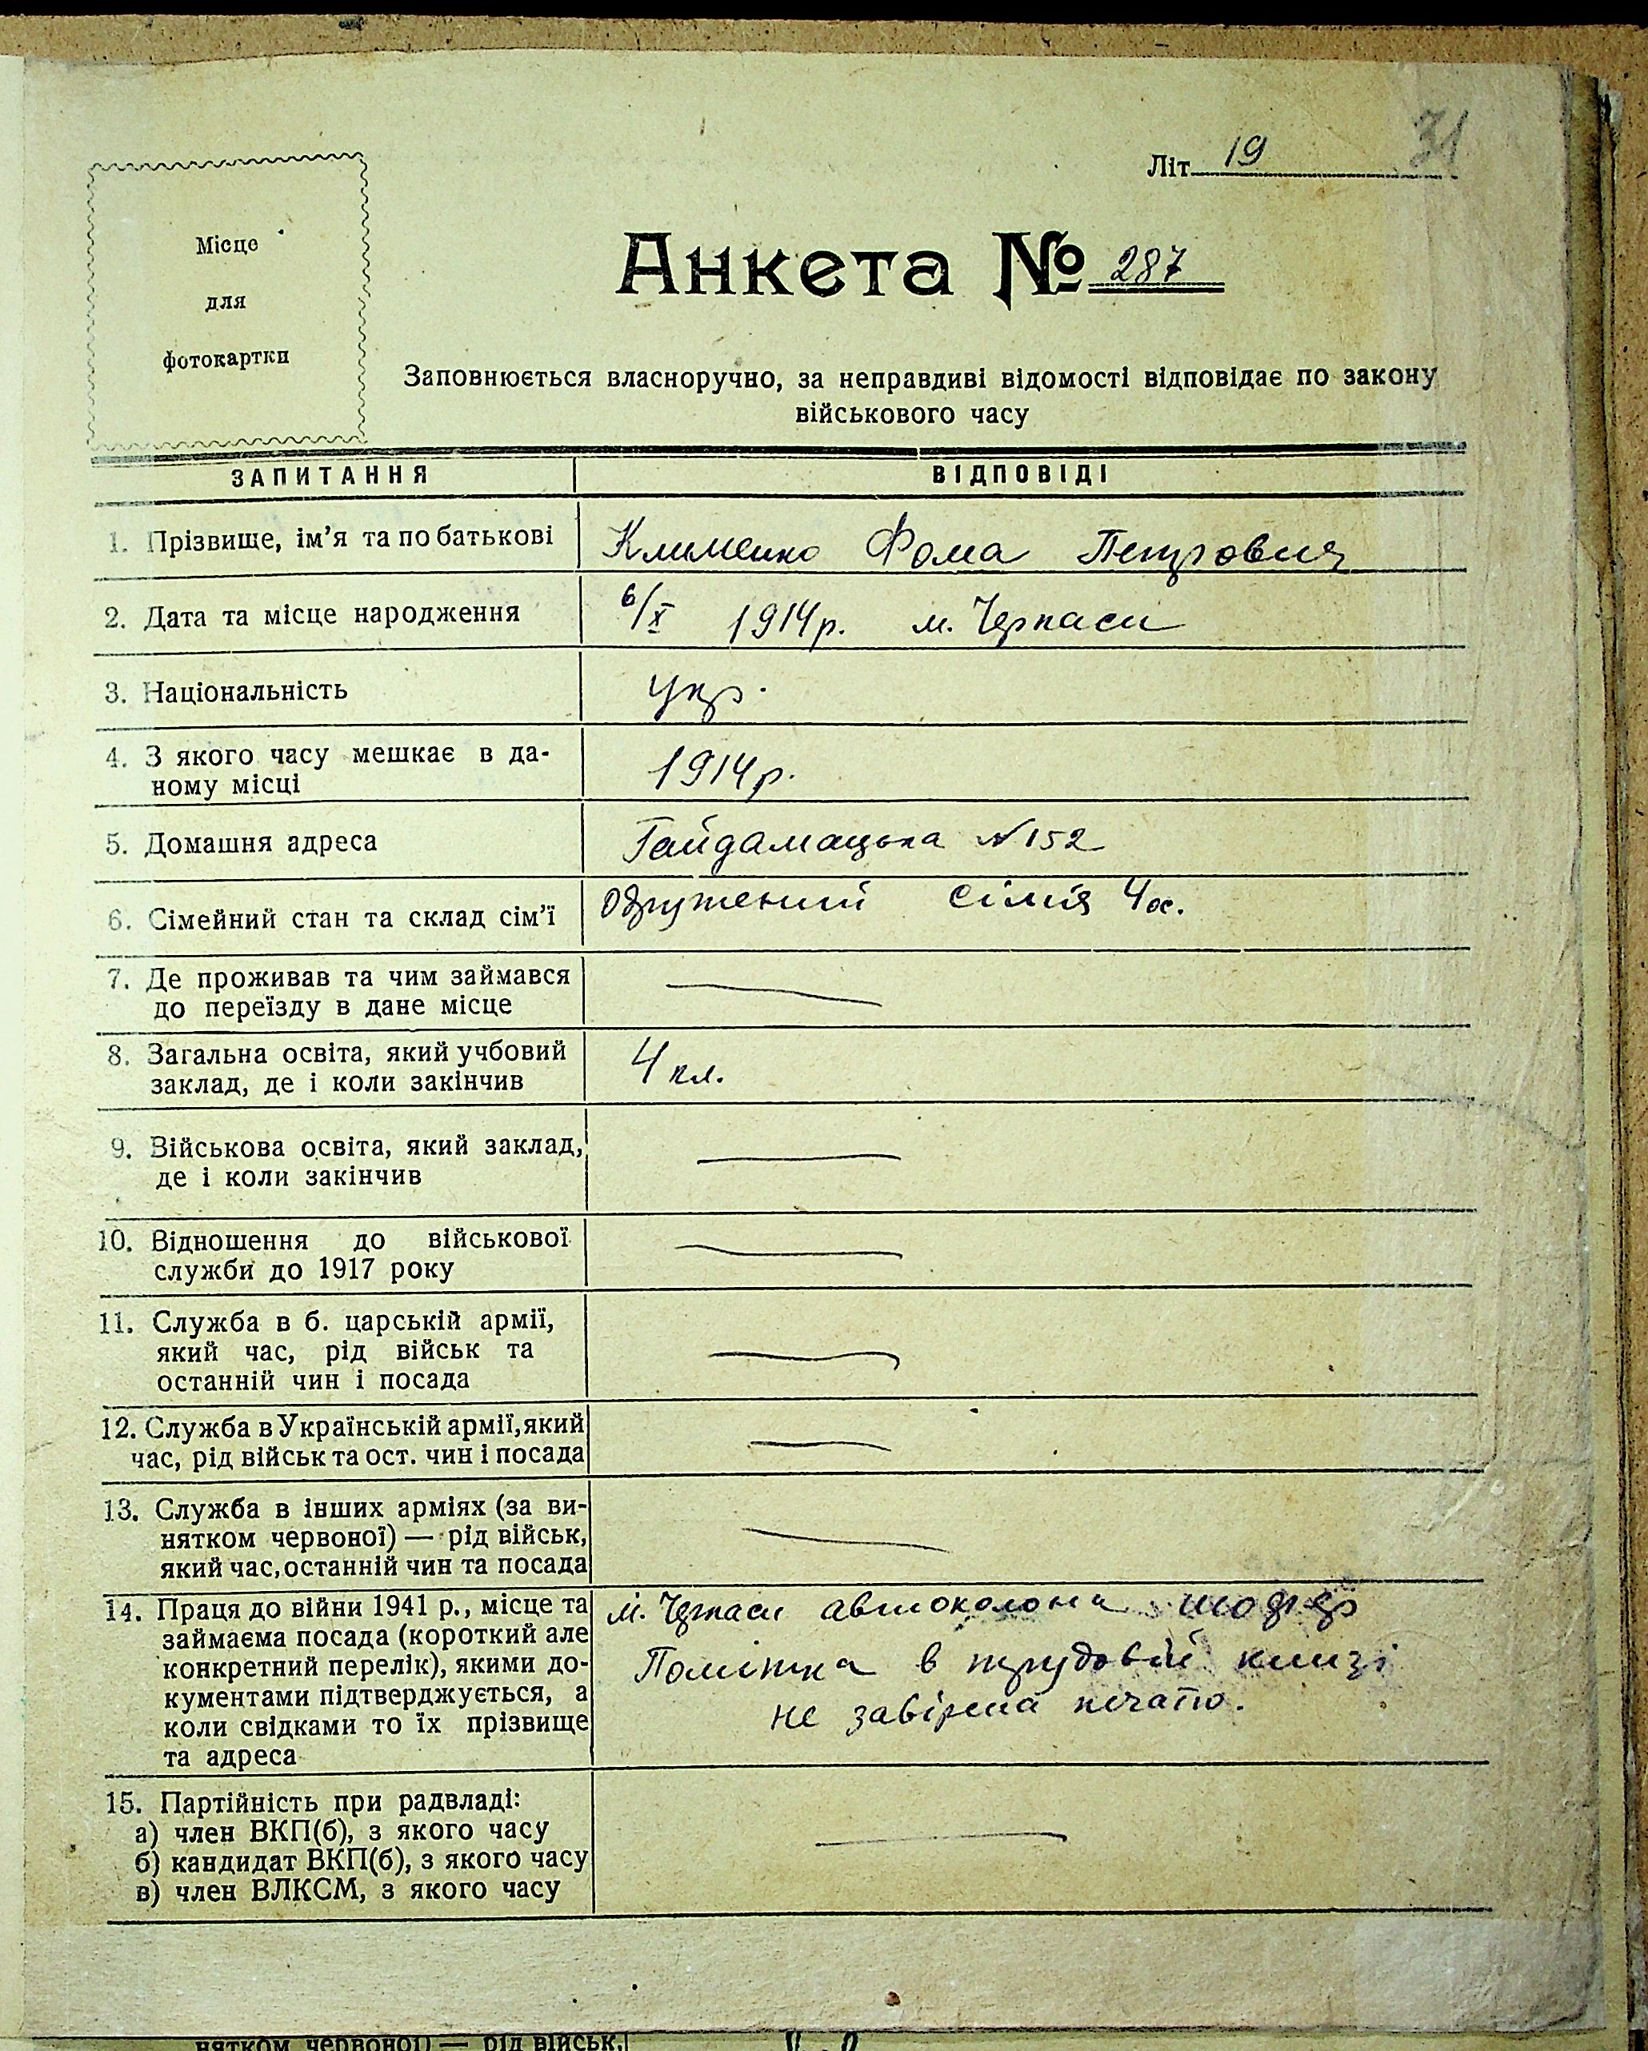 31
Літ. 19
Місце
для
фотокартки
Анкета № 287
Заповнюється власноручно, за неправдиві відомості відповідає по закону
військового часу
ЗАПИТАННЯ ВІДПОВІДІ
1. Прізвище, ім’я та по батькові Клименко Фома Петрович
2. Дата та місце народження 6/X 1914 р. м. Черкаси
3. Національність укр.
4. З якого часу мешкає в да-
ному місці 1914 р.
5. Домашня адреса Гайдамацька № 152
6. Сімейний стан та склад сім’ї Одружений сімія 4 ос.
7. Де проживав та чим займався
до переїзду в дане місце —
8. Загальна освіта, який учбовий
заклад, де і коли закінчив 4 кл.
9. Військова освіта, який заклад,
де і коли закінчив —
10. Відношення до військової
служби до 1917 року —
11. Служба в б. царській армії,
який час, рід військ та
останній чин і посада —
12. Служба в Українській армії, який
час, рід військ та ост. чин і посада —
13. Служба в інших арміях (за ви-
нятком червоної) — рід військ,
який час, останній чин та посада —
14. Праця до війни 1941 р., місце та
займаєма посада (короткий але
конкретний перелік), якими до-
кументами підтверджується, а
коли свідками то їх прізвище
та адреса
м. Черкаси автоколона шофер
Помітка в трудовій книзі
не завірена печаттю.
15. Партійність при радвладі:
а) член ВКП(б), з якого часу
б) кандидат ВКП(б), з якого часу
в) член ВЛКСМ, з якого часу —
нятком червоної) — рід військ,